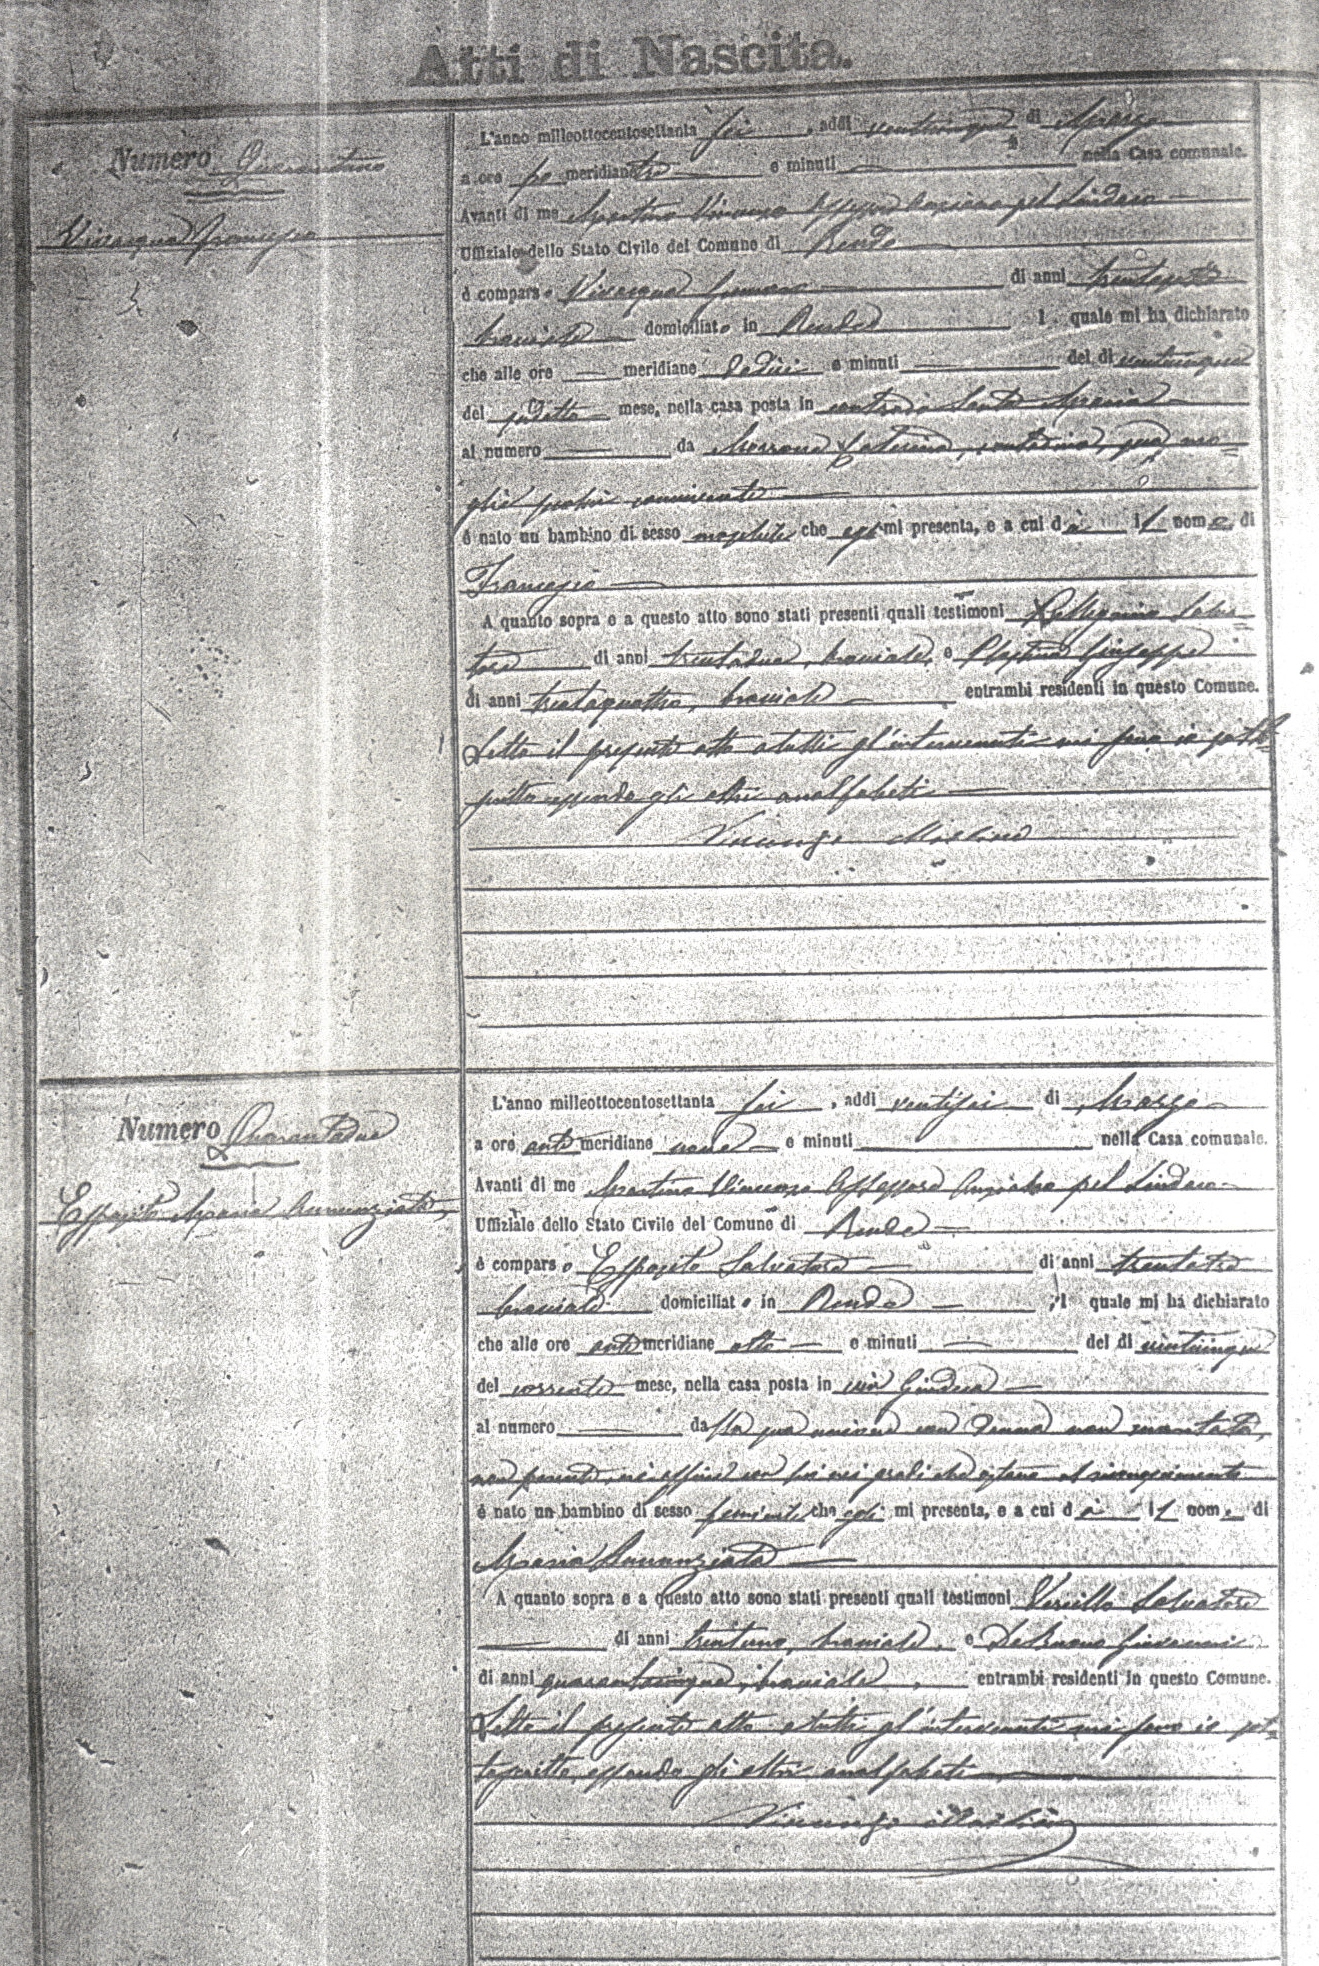 Atti di Nascita.
Numero Quarantuno
Vivacqua Francesco
L'anno milleottocentosettanta sei, addì venticinque di Marzo
a ore po meridiane tre e minuti — nella Casa comunale.
Avanti di me Martino Vincenzo Assessore Anziano pel Sindaco
Uffiziale dello Stato Civile del Comune di Rende
è comparso Vivacqua di anni
bracciale domiciliato in Rende il quale mi ha dichiarato
che alle ore — meridiane dodici e minuti — del dì venticinque
del sudetto mese, nella casa posta in contrada Santa Maria
al numero — da Morrone Caterina, contadina, sua mo=
glie seco lui convivente
è nato un bambino di sesso maschile che egli mi presenta, e a cui dà il nome di
Francesco
A quanto sopra e a questo atto sono stati presenti quali testimoni Pellegrino Salva=
tore di anni trentadue, bracciale, e Giuseppe
di anni trentaquattro, bracciale entrambi residenti in questo Comune.
Letto il presente atto a tutti gl'intervenuti
essendo gli altri analfabeti
Vincenzo Martino
Numero Quarantadue
Esposito Maria Annunziata
L'anno milleottocentosettanta sei, addì ventisei di Marzo
a ore anti meridiane nove e minuti — nella Casa comunale.
Avanti di me Martino Vincenzo Assessore Anziano pel Sindaco
Uffiziale dello Stato Civile del Comune di Rende
è comparso Esposito Salvatore di anni trentatre
bracciale domiciliato in Rende il quale mi ha dichiarato
che alle ore anti meridiane otto e minuti — del dì venticinque
del corrente mese, nella casa posta in via Giudeca
al numero — dalla sua unione con donna non maritata,
non parente, nè affine con lui nei gradi che ostano al riconoscimento
è nato un bambino di sesso feminile che egli mi presenta, e a cui dà il nome di
Maria Annunziata
A quanto sopra e a questo atto sono stati presenti quali testimoni Vercillo Salvatore
— di anni trentuno, bracciale e De Buono Giovanni
di anni quarantacinque, bracciale, entrambi residenti in questo Comune.
Letto il presente atto a tutti gl'intervenuti
essendo gli altri analfabeti
Vincenzo Martino